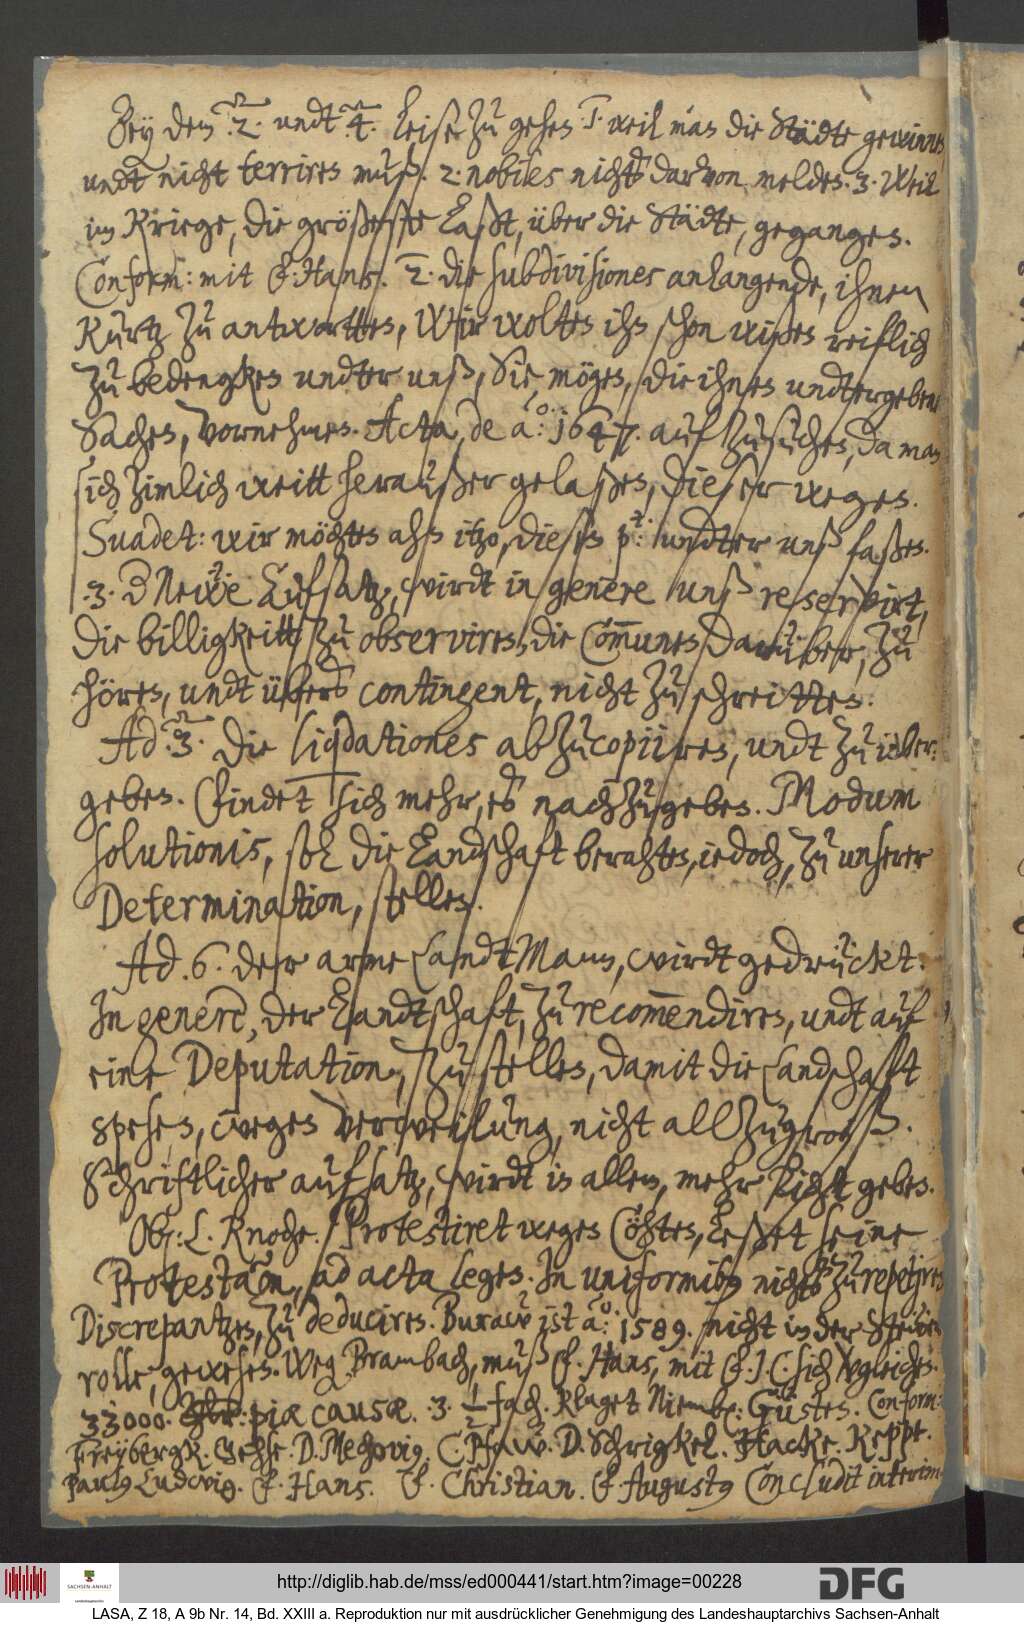 Bey dem .2. undt .4. leise zu gehen. 1. weil man die Städte gewinnen
undt nicht terriren muß. 2. nobiles nichts darvon melden. 3. Weil
im Kriege, die größeste Last, über die Städte, gegangen.
Conform: mit F. Hans. 2. die subdivisiones anlangende, ihnen
Kurtz zu antwortten, Wir wolten ihn schon wißen reiflich
zu bedengken undter unß, Sie mögen, die ihnen undtergebene
Sachen, vornehmen. Acta, de ao: 1647. auf zusuchen, da man
sich zimlich weitt heraußer gelaßen, dieser wegen.
Suadet: wir möchten alß itzo, dieses undter unß faßen.
.3. Neüe Aufsatz, wirdt in genere unß reservirt,
die billigkeitt zu observiren, die Communen darüber, zu
hören, undt übers contingent, nicht zu schreitten.
Ad .3. die liqdationes abzucopiiren, undt zu über:
geben. findet sich mehr, es nachzugeben. Modum
solutionis, sol die Landschaft berahten, iedoch, zu unserer
Determination, stellen.
Ad .6. der arme Landt Mann, wirdt gedrückt.
In genere, der Landtschaft, zu recommendiren, undt auf
eine Deputation, zu stellen, damit die Landschafft
spesen, wegen verweilung, nicht allzugroß.
Schriftlicher aufsatz, wirdt in allem, mehr Licht geben.
Ob: L. Knoche. Protestiret wegen Cöhten, Leßet seine
Protestaon, ad acta legen. In uniformibus nichts zu repetiren
Discrepantzen, zu deduciren. Buraw ist ao: 1589. nicht in der Steüer
rolle, gewesen. Weg. Brambach, muß F. Hans, mit F. J. C. sich vgleichen.
33000. piæ causæ. .3. 1/2 fach. Klaget Niemb: Güsten. Conform:
Freybergk. Gehse. D. Mechovig. C. Pfaw. D. Schrigkel. Hacke. Keppe.
Paulg Ludwig. F. Hans. F. Christian. F. Augustg Concludit interim
http://diglib.hab.de/mss/ed000441/start.htm?image=00228
DFG
SACHSEN-ANHALT
LASA, Z 18, A 9b Nr. 14, Bd. XXIII a. Reproduktion nur mit ausdrücklicher Genehmigung des Landeshauptarchivs Sachsen-Anhalt